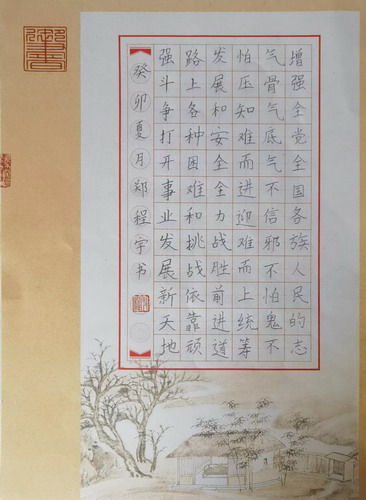 增强全党全国各族人民的志
气骨气底气不信邪不怕鬼不
怕压知难而进迎难而上统筹
发展和安全全力战胜前进道
路上各种困难和挑战依靠顽
强斗争打开事业发展新天地
癸卯夏月郑程宇书